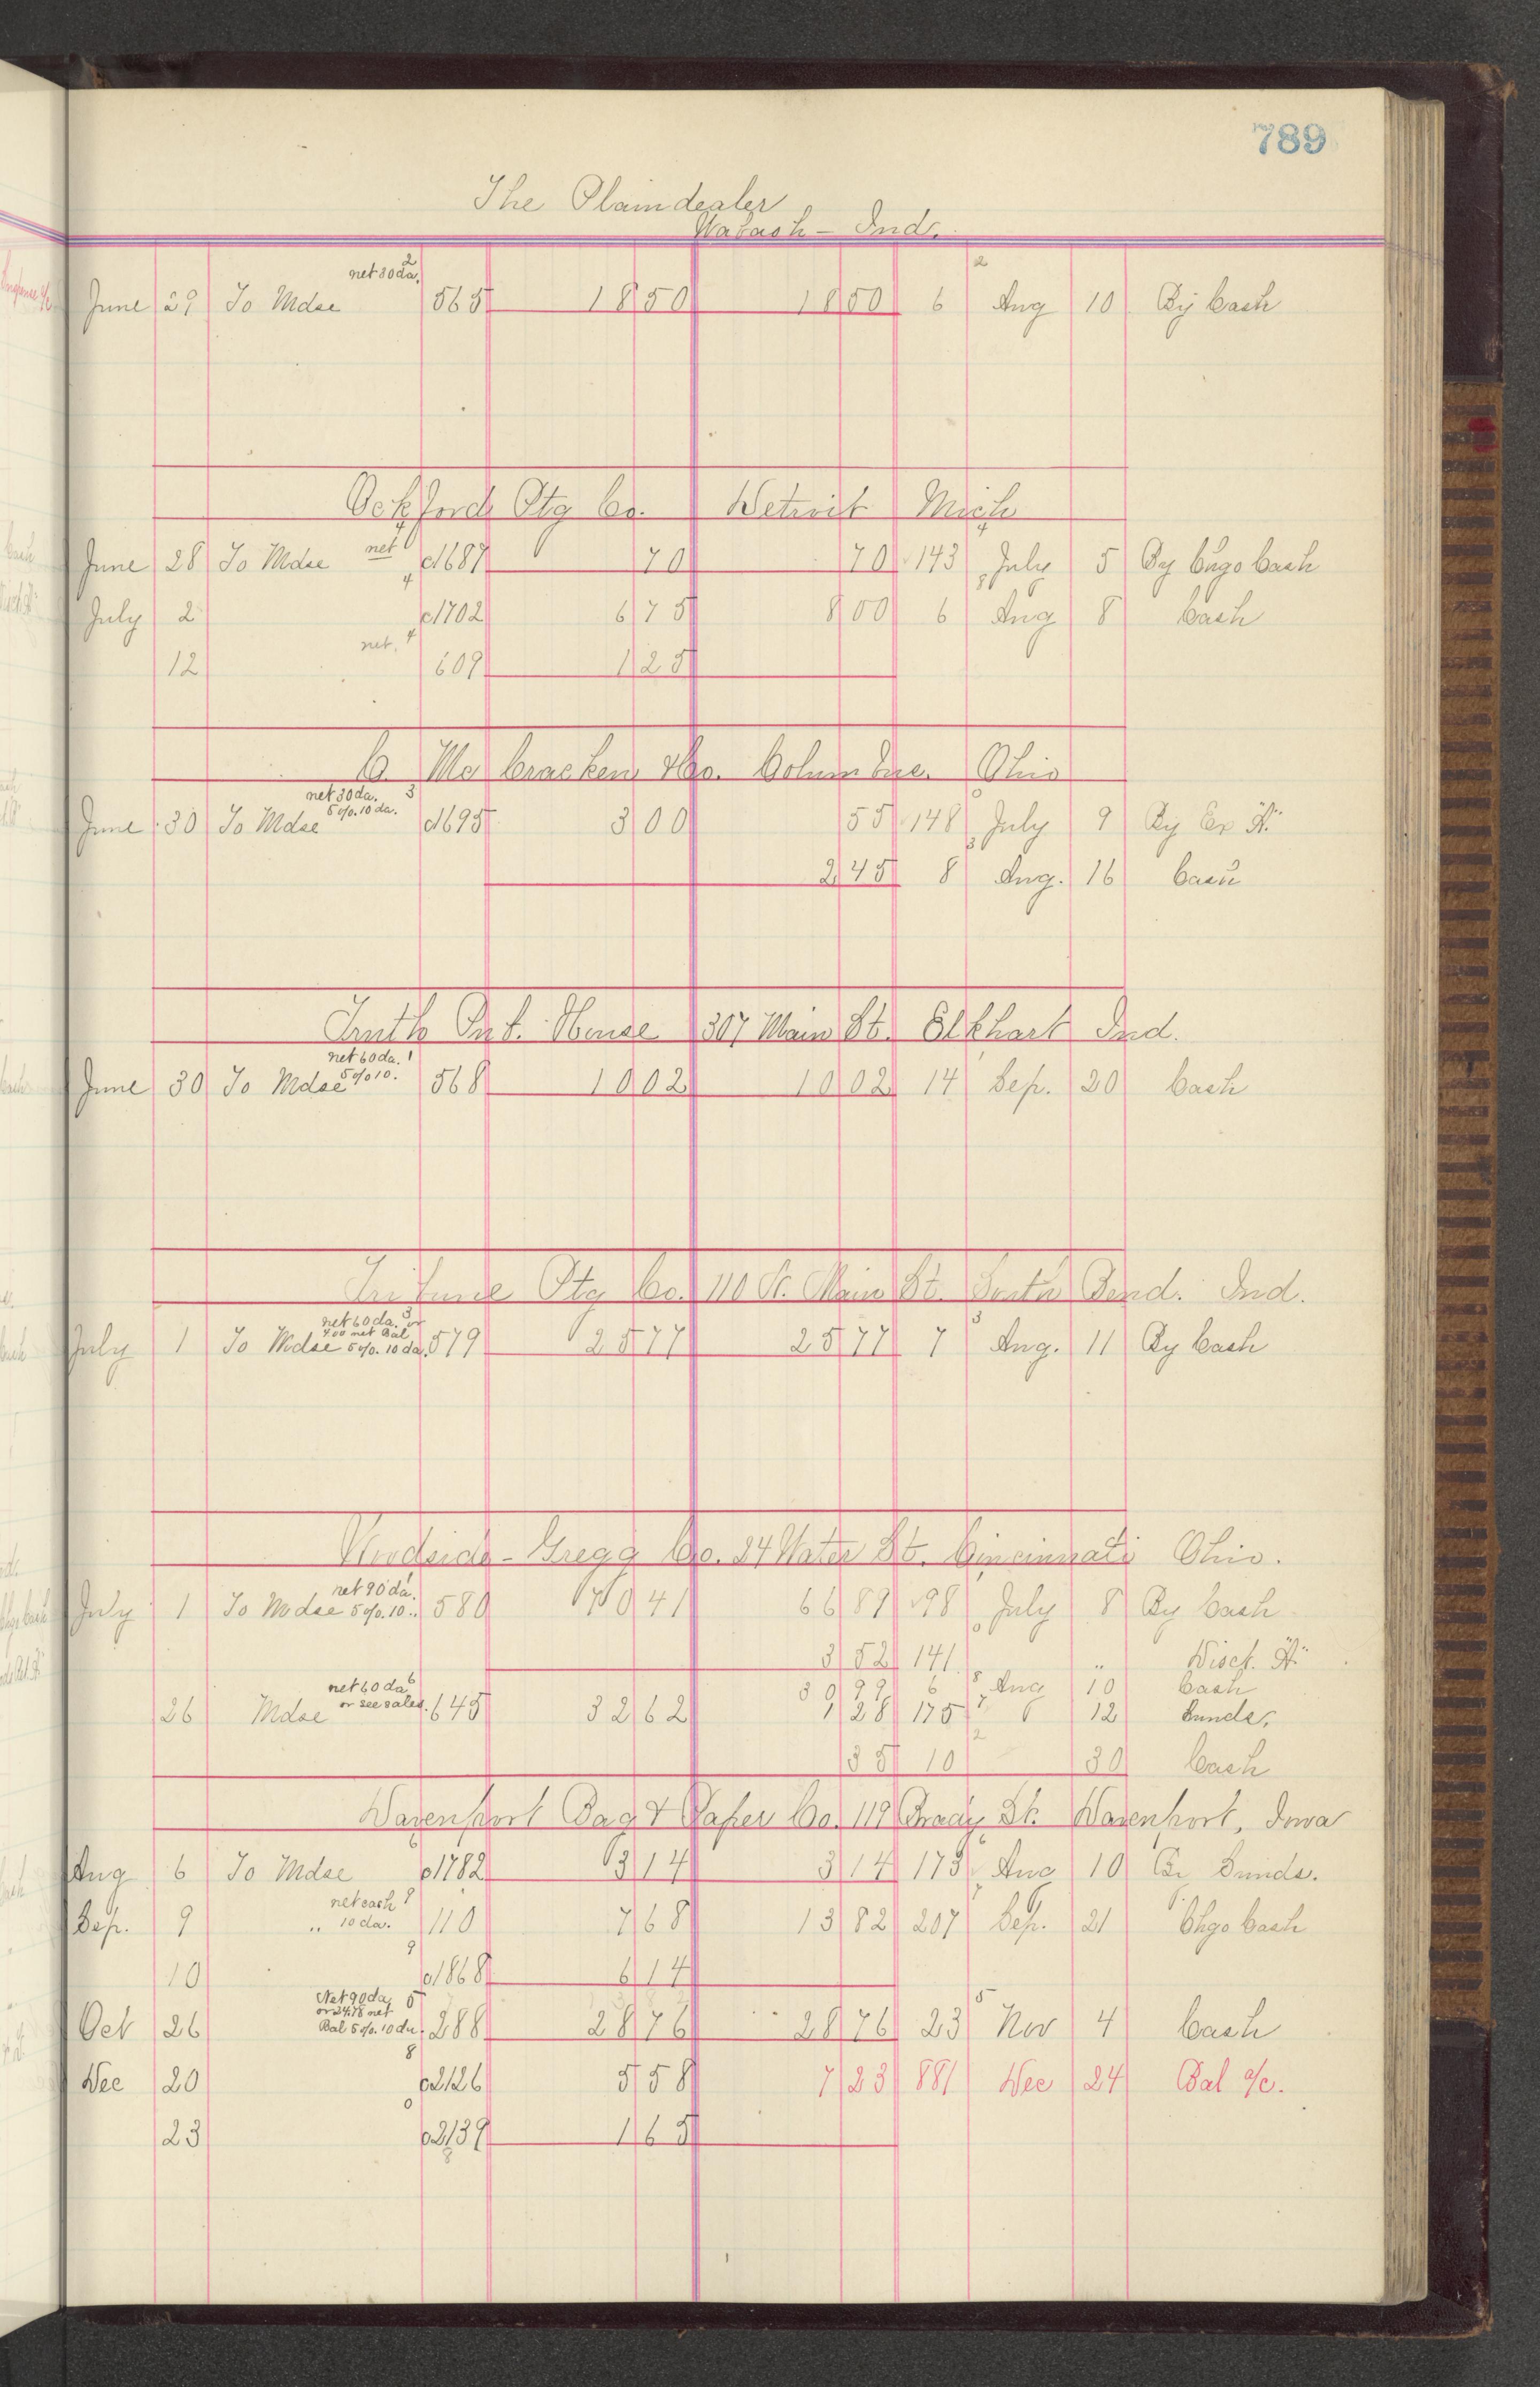 789
The Plaindealer
Wabash - Ind.
net 30 da. 2 2
June 29 To Mdse 565 18 50 18 50 6 Aug 10 By Cash
Ockford Ptg Co. Detroit Mich
June 28 To Mdse net c1687 70 70 143 July 5 By Chgo Cash
July 2 c1702 6 75 8 00 6 Aug 8 Cash
12 net. 609 1 25
C. McCracken & Co. Columbus. Ohio
net 30 da. 3
June 30 To Mdse 5%. 10 da. c1695 3 00 55 148 July 9 By Ex "A"
2 45 8 Aug. 16 Cash
Truth Pub. House 307 Main St. Elkhart Ind.
net 60 da. 1
June 30 To Mdse 5% 10. 568 10 02 10 02 14 Sep. 20 Cash
Tribune Ptg Co. 110 N. Main St. South Bend. Ind.
net 60 da. 3 or
4.00 net Bal
July 1 To Mdse 5%. 10 da. 579 25 77 25 77 7 Aug. 11 By Cash
Woodside - Gregg Co. 24 Water St. Cincinnati Ohio.
net 90 da.
July 1 To Mdse 5%. 10 .. 580 70 41 66 89 98 July 8 By Cash
3 52 141 " Disct. "A"
net 60 da 6 30 99 6 Aug 10 Cash
26 Mdse or see sales. 645 32 62 1 28 175 12 Sunds.
35 10 30 Cash
Davenport Bag & Paper Co. 119 Brady St. Davenport, Iowa
Aug 6 To Mdse c1782 3 14 3 14 173 Aug 10 By Sunds.
net cash 9
Sep. 9 " 10 da. 110 7 68 13 82 207 Sep. 21 Chgo Cash
10 9 c1868 6 14
Net 90 da 5
or 24.78 net
Oct 26 Bal 5%. 10 da. 288 28 76 28 76 23 Nov 4 Cash
Dec 20 8 c2126 5 58 7 23 881 Dec 24 Bal a/c.
23 0 c2139 1 65